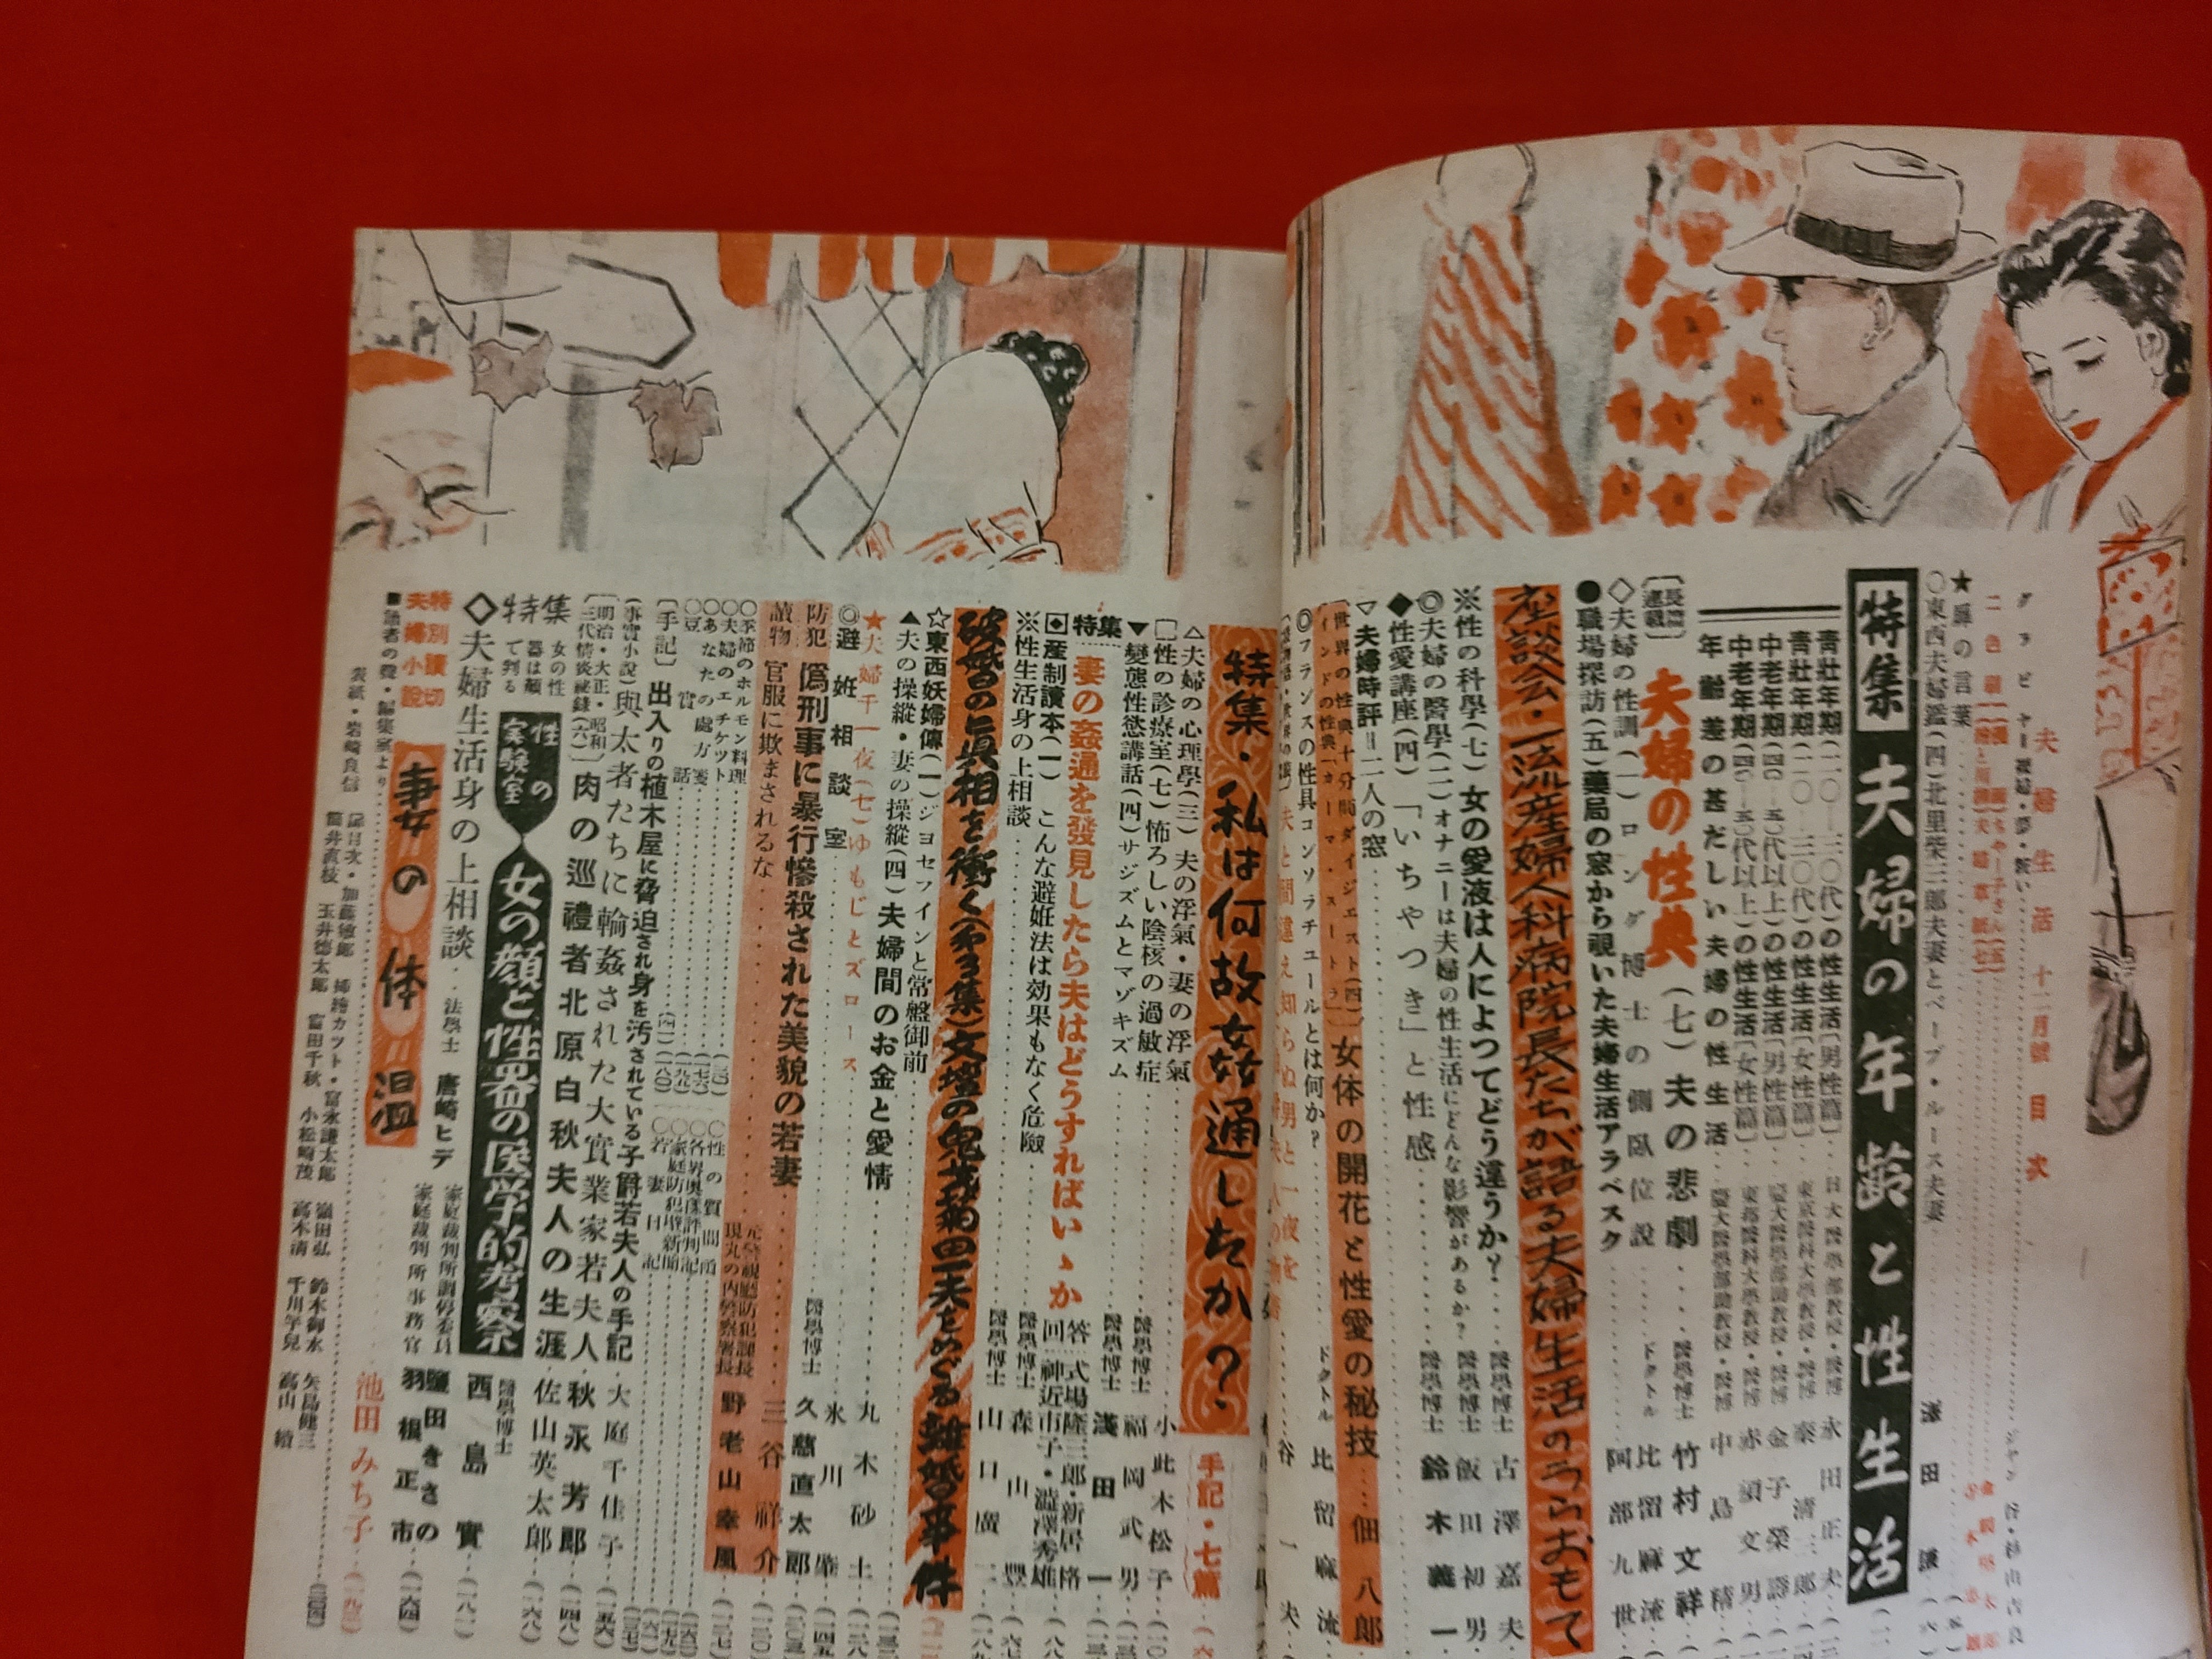 夫婦生活 十二月號 目次
★扉の言葉
○東西夫婦鑑(四)北里柴三郎夫妻とベーブ・ルース夫妻
特集 夫婦の年齢と性生活
青壯年期(二〇—三〇代)の性生活〔男性篇〕 日大醫學部教授・醫博 永田正夫
青壯年期(二〇—三〇代)の性生活〔女性篇〕 東京醫科大學教授・醫博 秦清三郎
中老年期(四〇—五〇代以上)の性生活〔男性篇〕 慶大醫學部助教授・醫博 金子榮壽
中老年期(四〇—五〇代以上)の性生活〔女性篇〕 東邦醫科大學教授・醫博 赤須文男
年齢差の甚だしい夫婦の性生活 慶大醫學部助教授・醫博 中島精
〔長篇連載〕 夫婦の性典(七)夫の悲劇 醫學博士 竹村文祥
◇夫婦の性訓(一)ロング博士の側臥位說 ドクトル 比留麻流
●職場探訪(五)藥局の窓から覗いた夫婦生活アラベスク 阿部九世
座談会・一流産婦人科病院長たちが語る夫婦生活のうらおもて
※性の科學(七)女の愛液は人によつてどう違うか? 醫學博士 古澤嘉夫
◎夫婦の醫學(二)オナニーは夫婦の性生活にどんな影響があるか? 醫學博士 飯田初男
◆性愛講座(四)「いちやつき」と性感 醫學博士 鈴木義一
▽夫婦時評=二人の窓
〔世界の性典十分間ダイジェスト(四)〕
インドの性典「カーマ・スートラ」 女体の開花と性愛の秘技 佃八郎
◎フランスの性具コンソラチユールとは何か? ドクトル 比留麻流
特集・私は何故姦通したか? 手記・七篇
△夫婦の心理學(三)夫の浮氣・妻の浮氣 小此木松子
□性の診療室(七)怖ろしい陰核の過敏症 醫學博士 福岡武男
▼變態性慾講話(四)サジズムとマゾキズム 醫學博士 淺田一
特集 妻の姦通を發見したら夫はどうすればいゝか 回答 式場隆三郎・新居格 神近市子・澁澤秀雄
▣産制讀本(一)こんな避姙法は効果もなく危險 醫學博士 森山豐
※性生活身の上相談 醫學博士 山口廣二
破婚の眞相を衝く(第3集)文壇の鬼才菊田一夫をめぐる離婚事件
☆東西妖婦傳(一)ジヨセフインと常盤御前
▲夫の操縱・妻の操縱(四)夫婦間のお金と愛情 丸木砂土
★夫婦千一夜(七)ゆもじとズロース
◎避姙相談室 醫學博士 久慈直太郎
防犯讀物 僞刑事に暴行慘殺された美貌の若妻 三谷祥介
官服に欺まされるな 元警視廳防犯課長 現丸の內警察署長 野老山幸風
○季節のホルモン料理
○夫婦のエチケツト
○あなたの處方箋
○性の質問函
○家庭防犯壁新聞
○若妻日記
〔手記〕出入りの植木屋に脅迫され身を汚されている子爵若夫人の手記 大庭千佳子
(事實小說)與太者たちに輪姦された大實業家若夫人 秋永芳郎
〔明治・大正・昭和三代情炎祕錄(六)〕肉の巡禮者北原白秋夫人の生涯 佐山英太郎
特集 女の性器は顏で判る 性の実験室 女の顔と性器の医学的考察 醫學博士 西島實
◇夫婦生活身の上相談 法學士 唐崎ヒデ 家庭裁判所調停委員 鹽田きさの 家庭裁判所事務官 羽根正市
特別讀切夫婦小說 妻の体温 池田みち子
■讀者の聲・編集室より
表紙・岩崎良信 目次・加藤敏郎 揷繪カット・富永謙太郎 嶺田弘 鈴木御水 矢島健三
筒井直枝 玉井德太郎 富田千秋 小松崎茂 高木清 千川竿兒 高山